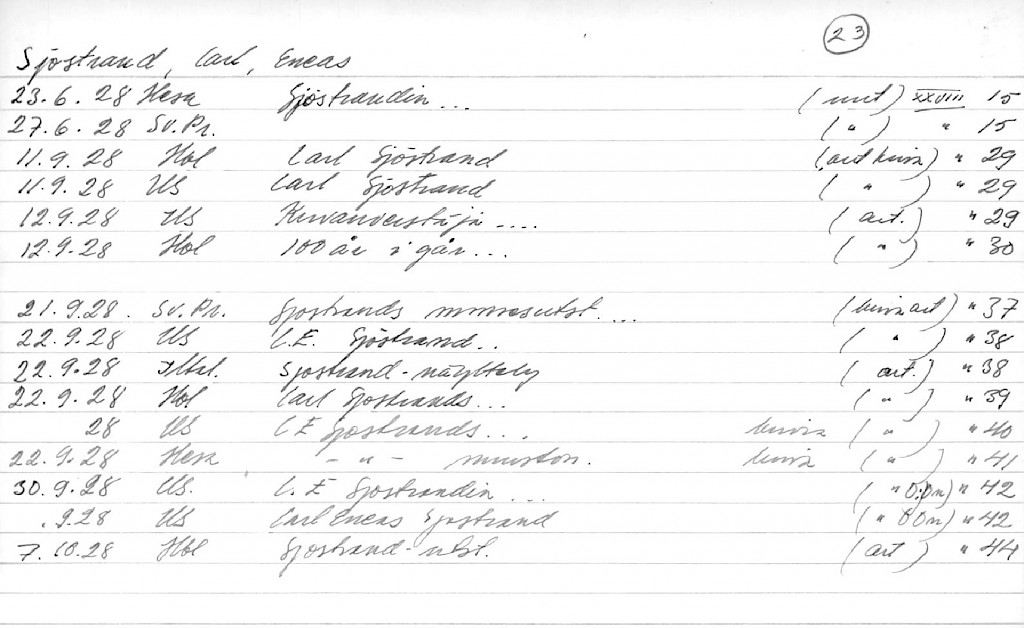 23
Sjöstrand, Carl, Eneas
23.6.28 Hesa Sjöstrandin ... (uut) XXVIII 15
27.6.28 Sv.Pr. ( " ) " 15
11.9.28 Hbl Carl Sjöstrand (art kuva) " 29
11.9.28 US Carl Sjöstrand ( " ) " 29
12.9.28 US Kuvanveistäjä .... ( art. ) " 29
12.9.28 Hbl 100 år i går ... ( " ) " 30
21.9.28. Sv.Pr. Sjöstrands minnesutst. ... (kuva art) " 37
22.9.28 US C.E. Sjöstrand.. ( " ) " 38
22.9.28 Iltal. Sjöstrand-näyttely ( art. ) " 38
22.9.28 Hbl Carl Sjöstrands ... ( " ) " 39
28 US C E Sjöstrands ... kuvia ( " ) " 40
22.9.28 Hesa - " - muiston. kuvia ( " ) " 41
30.9.28 US. C. E Sjöstrandin ... ( " O:n) " 42
.9.28 US Carl Eneas Sjöstrand ( " O On) " 42
7.10.28 Hbl Sjöstrand-utst. (art ) " 44